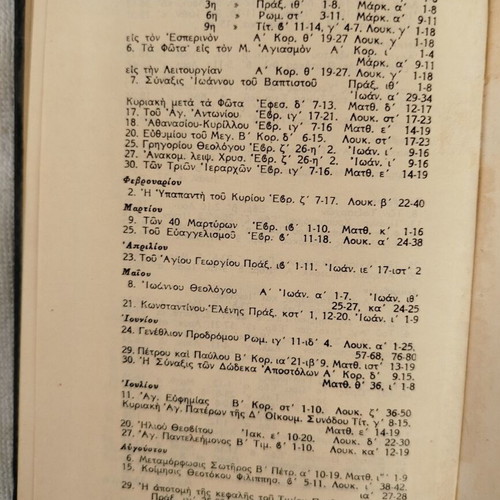 3η » Πράξ. ιθ' 1-8
6η » Ρωμ. στ' 3-11. Μάρκ. α' 9-11
9η » Τίτ. β' 11-14, γ' 4-7. Λουκ. γ' 1-18
εἰς τὸν Ἑσπερινὸν Α' Κορ. θ' 19-27 Λουκ. γ' 1-18
6. Τὰ Φῶτα εἰς τὸν Μ. Ἁγιασμὸν Α' Κορ. ι' 1-4
Μάρκ. α' 9-11
εἰς τὴν Λειτουργίαν Α' Κορ. θ' 19-27. Λουκ. γ' 1-18
7. Σύναξις Ἰωάννου τοῦ Βαπτιστοῦ Πράξ. ιθ' 1-8
Ἰωάν. α' 29-34
Κυριακὴ μετὰ τὰ Φῶτα Ἐφεσ. δ' 7-13. Ματθ. δ' 12-17
17. Τοῦ Ἁγ. Ἀντωνίου Ἑβρ. ιγ' 17-21. Λουκ. στ' 17-23
18. Ἀθανασίου-Κυρίλλου Ἑβρ. ιγ' 7-16 Ματθ. ε' 14-19
20. Εὐθυμίου τοῦ Μεγ. Β' Κορ. δ' 6-15. Λουκ. στ' 17-23
25. Γρηγορίου Θεολόγου Ἑβρ. ζ' 26-η' 2. Ἰωάν. ι' 9-16
27. Ἀνακομ. λειψ. Χρυσ. Ἑβρ. ζ' 26-η' 2. Ἰωάν. ι' 9-16
30. Τῶν Τριῶν Ἱεραρχῶν Ἑβρ. ιγ' 7-16. Ματθ. ε' 14-19
Φεβρουαρίου
2. Ἡ Ὑπαπαντὴ τοῦ Κυρίου Ἑβρ. ζ' 7-17. Λουκ. β' 22-40
Μαρτίου
9. Τῶν 40 Μαρτύρων Ἑβρ. ιβ' 1-10. Ματθ. κ' 1-16
25. Τοῦ Εὐαγγελισμοῦ Ἑβρ. β' 11-18. Λουκ. α' 24-38
Ἀπριλίου
23. Τοῦ Ἁγίου Γεωργίου Πράξ. ιβ' 1-11. Ἰωάν. ιε' 17-ιστ' 2
Μαΐου
8. Ἰωάννου Θεολόγου Α' Ἰωάν. α' 1-7. Ἰωάν. ιθ'
25-27, κα' 24-25
21. Κωνσταντίνου-Ἑλένης Πράξ. κστ' 1, 12-20. Ἰωάν. ι' 1-9
Ἰουνίου
24. Γενέθλιον Προδρόμου Ρωμ. ιγ' 11-ιδ' 4. Λουκ. α' 1-25.
57-68, 76-80
29. Πέτρου καὶ Παύλου Β' Κορ. ια' 21-ιβ' 9. Ματθ. ιστ' 13-19
30. Ἡ Σύναξις τῶν Δώδεκα Ἀποστόλων Α' Κορ. δ' 9.15.
Ματθ. θ' 36, ι' 1-8
Ἰουλίου
11. Ἁγ. Εὐφημίας Β' Κορ. στ' 1-10. Λουκ. ζ' 36-50
Κυριακὴ Ἁγ. Πατέρων τῆς Δ' Οἰκουμ. Συνόδου Τίτ. γ' 8-15.
Ματθ. ε' 14-19
20. Ἠλιοῦ Θεσβίτου Ἰακ. ε' 10-20. Λουκ. δ' 22-30
27. Ἁγ. Παντελεήμονος Β' Τιμ. β' 1-10. Λουκ. κα' 12-19
Αὐγούστου
6. Μεταμόρφωσις Σωτῆρος Β' Πέτρ. α' 10-19. Ματθ. ι" 1-9
15. Κοίμησις Θεοτόκου Φιλιππησ. β' 5-11. Λουκ. ι' 38-42.
ια' 27-28
29. Ἡ ἀποτομὴ τῆς κεφαλῆς τοῦ